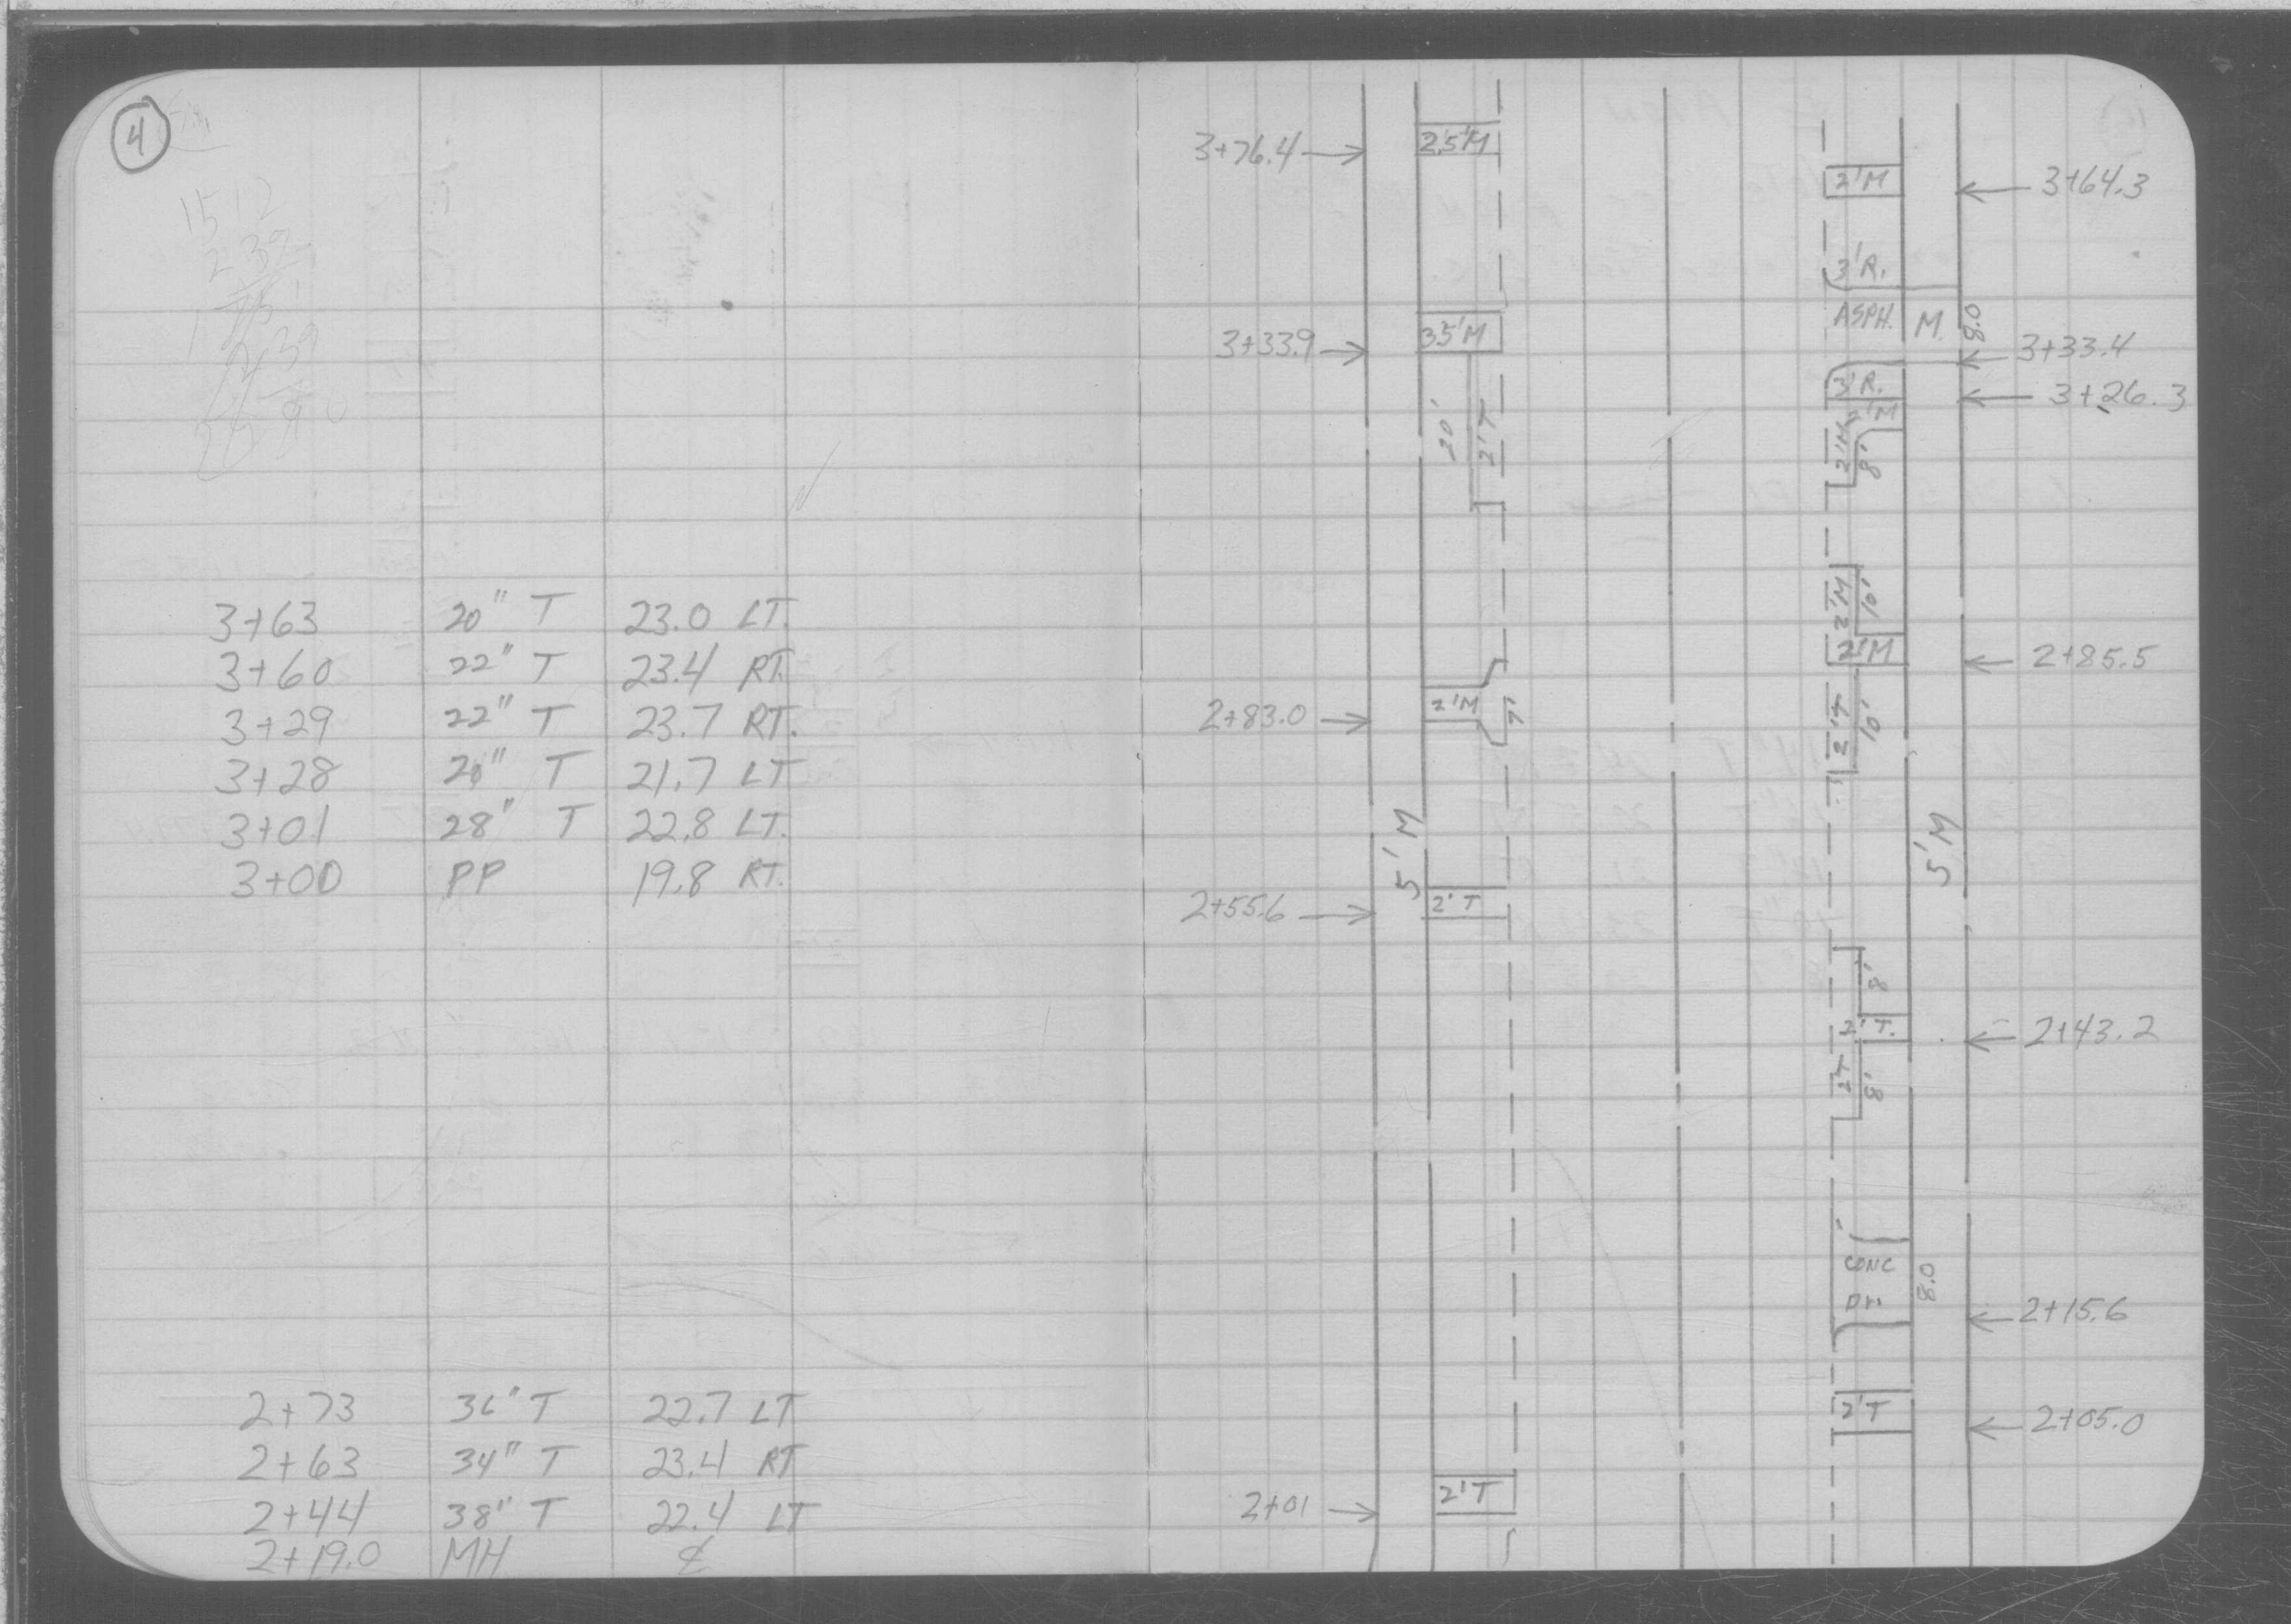 4
3+63 20" T 23.0 LT.
3+60 22" T 23.4 RT.
3+29 22" T 23.7 RT.
3+28 20" T 21.7 LT
3+01 28" T 22.8 LT.
3+00 PP 19.8 RT.
2+73 36" T 22.7 LT
2+63 34" T 23.4 RT
2+44 38" T 22.4 LT
2+19.0 MH ℄
3+76.4 2.5'M
2'M 3+64.3
3'R.
ASPH. M. 8.0
3+33.9 3.5'M
3+33.4
3'R.
3+26.3
2'M
2'M 8'
20' 2'T
2'M 10'
2'M 2+85.5
2+83.0 2'M 7'
2'T 10'
5'M 5'M
2+55.6 2'T
8'
2'T. 2+43.2
2'T 8'
CONC
8.0
2+15.6
2'T 2+05.0
2+01 2'T